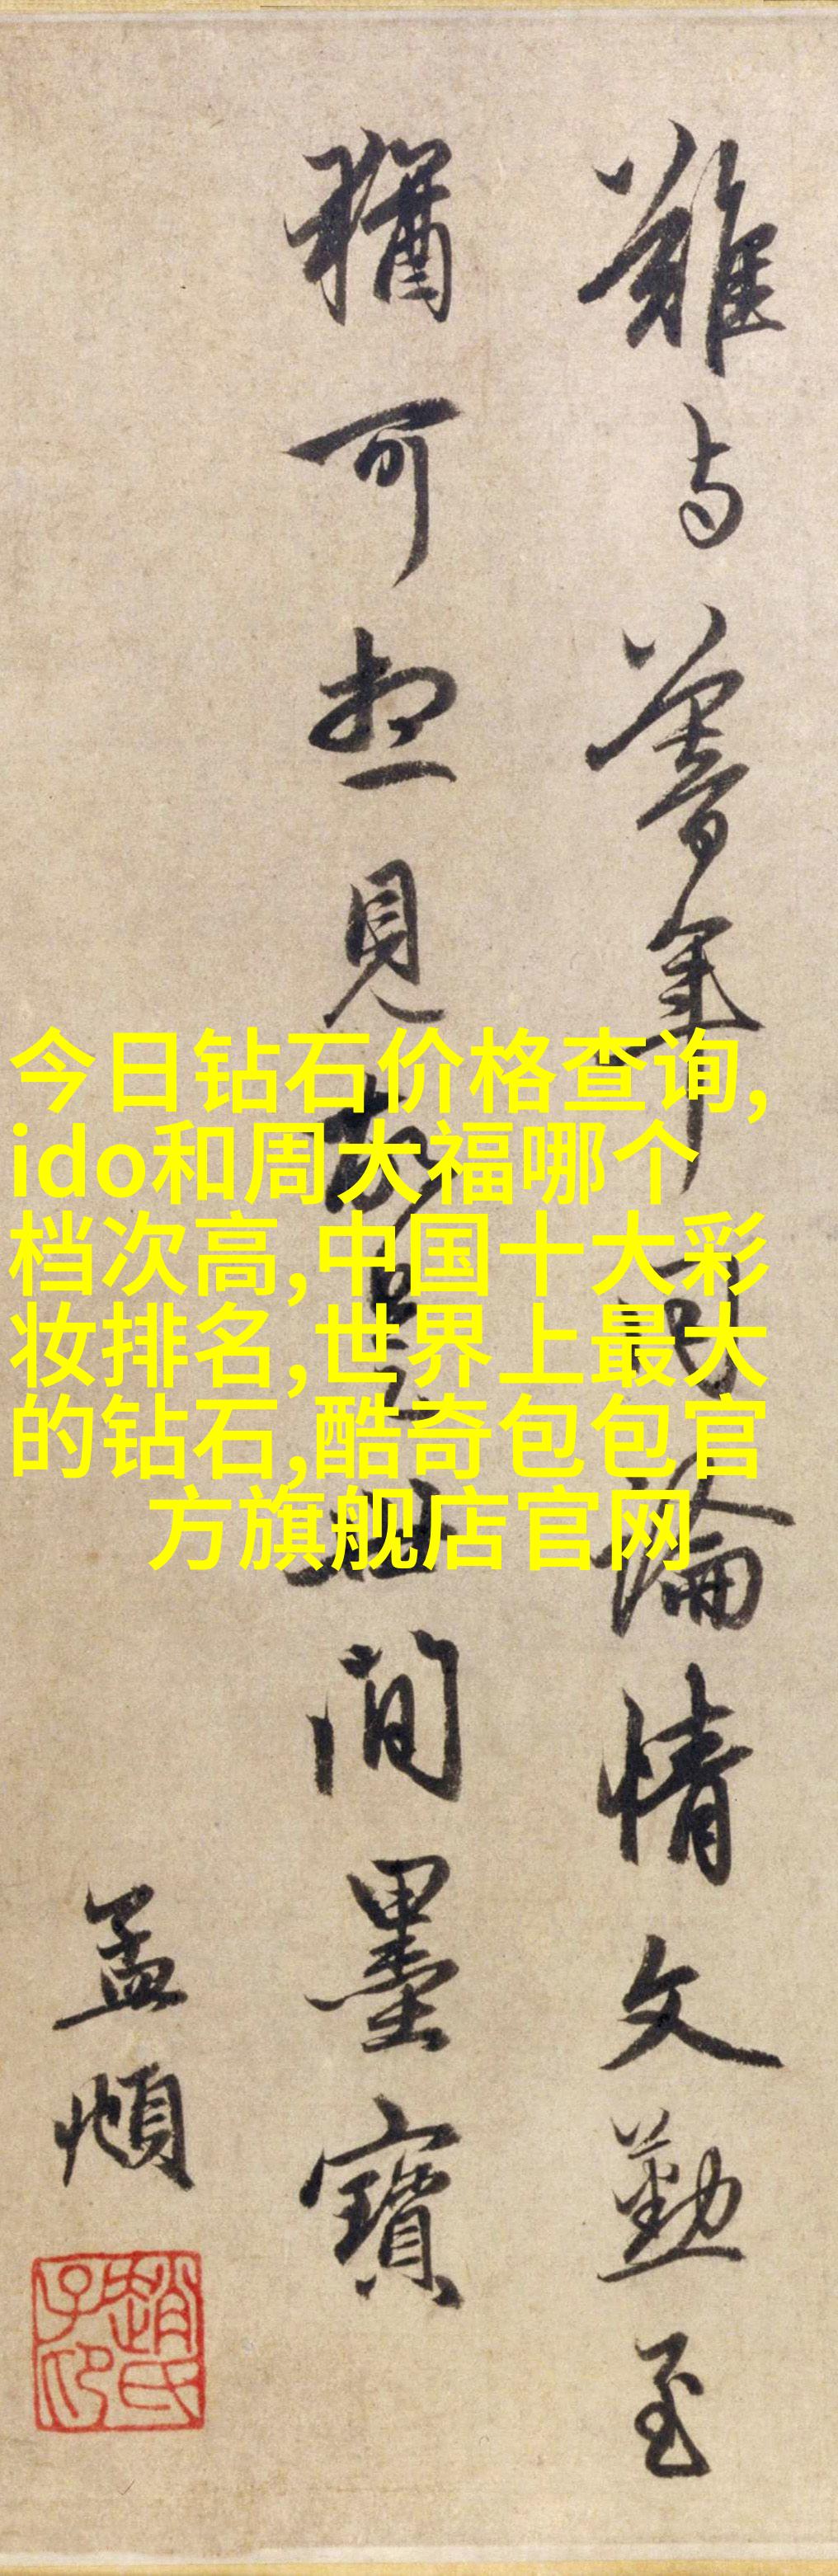 難与暮年同論情文勤至
猶可想見故是世間墨寶
孟頫
趙氏子昂
今日钻石价格查询,
ido和周大福哪个
档次高,中国十大彩
妆排名,世界上最大
的钻石,酷奇包包官
方旗舰店官网